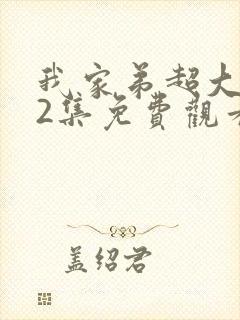 我家弟超大
2集免费觀
盖绍君